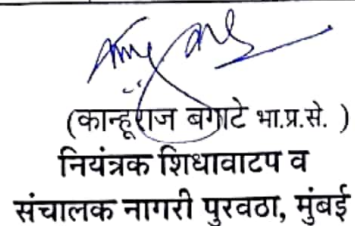 (कान्हूराज बगाटे भा.प्र.से. )
नियंत्रक शिधावाटप व
संचालक नागरी पुरवठा, मुंबई